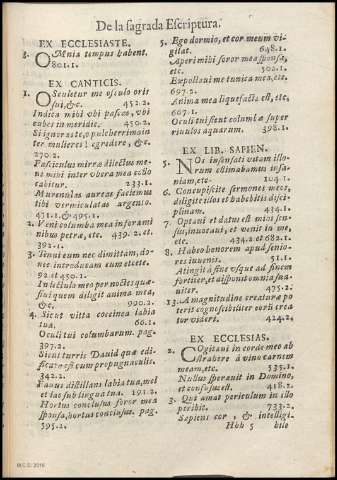 De la sagrada Escriptura.
EX ECCLESIASTE.
3. OMnia tempus habent.
801.1.
EX CANTICIS.
1. OSculetur me osculo oris
sui, &c. 452.2.
Indica mihi vbi pascas, vbi
cubes in meridie. 450.2.
Si ignoras te, ò pulcherrima in
ter mulieres: egredere, &c.
270.2.
Fasciculus mirræ dilectus me
us mihi inter vbera mea cõmo
rabitur. 233.1.
Murenulas aureas faciemus
tibi vermiculatas argento.
431.1. & 495.1.
2. Veni columba mea in forami
nibus petræ, etc. 439.2. et.
392.1.
3. Tenui eum nec dimittam, do-
nec introducam eum etcete.
92. et 450.1.
In lectulo meo per noctes quæ-
siui quem diligit anima mea,
&c. 990.2.
4. Sicut vitta coccinea labia
tua. 66.1.
Oculi tui columbarum. pag.
397.2.
Sicut turris Dauid quæ edi-
ficata est cum propugnaculis.
342.2.
Fauus distillans labia tua, mel
et lac sub lingua tua. 191.2.
Hortus conclusus soror mea
sponsa, hortus conclusus. pag.
595.2.
5. Ego dormio, et cor meum vi-
gilat. 648.1.
Aperi mihi soror mea sponsa,
etc. 502.1.
Expoliaui me tunica mea, etc.
697.2.
Anima mea liquefacta est, etc,
667.1.
Oculi tui sicut columbæ super
riuulos aquarum. 398.1.
EX LIB. SAPIEN.
5. NOs insensati vitam illo-
rum estimabamus insa-
niam, etc. 104.1.
6. Concupiscite sermones meos,
diligite illos et habebitis disci-
plinam. 434.1.
7. Optaui et datus est mihi sen-
sus, inuocaui, et venit in me,
etc. 434.2 et 682.1.
8. Habeo honorem apud senio-
res iuuenis. 51.1.
Atingit à fine vsque ad finem
fortiter, et disponit omnia sua-
uiter. 475.2.
13. A magnitudine creaturæ po
terit cognoscibiliter eorũ crea
tor videri. 424.2,
EX ECCLESIAS.
2. COgitaui in corde meo ab
strahere à vino carnem
meam, etc. 535.1.
Nullus sperauit in Domino,
et confusus est. 418.2.
3. Qui amat periculum in illo
peribit. 733.2.
Sapiens cor, & intelligi
Hhh 5 bile